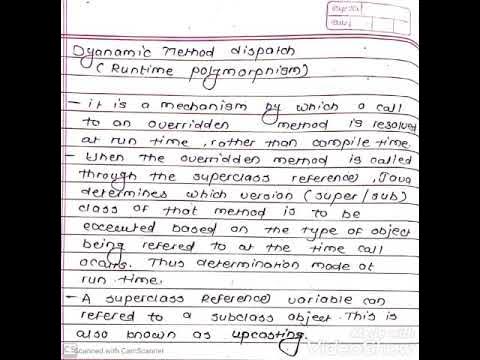 Dyanamic Method dispatch
(Runtime polymorphism)
- it is a mechanism by which a call
to an overridden method is resolved
at run time, rather than compile time.
- When the overridden method is called
through the superclass reference, Java
determines which version (super/sub)
class of that method is to be
executed based on the type of object
being refered to at the time call
occurs. Thus determination made at
run time.
- A superclass Reference variable can
refered to a subclass object. This is
also known as upcasting.
CS Scanned with CamScanner
Made with
VideoShow